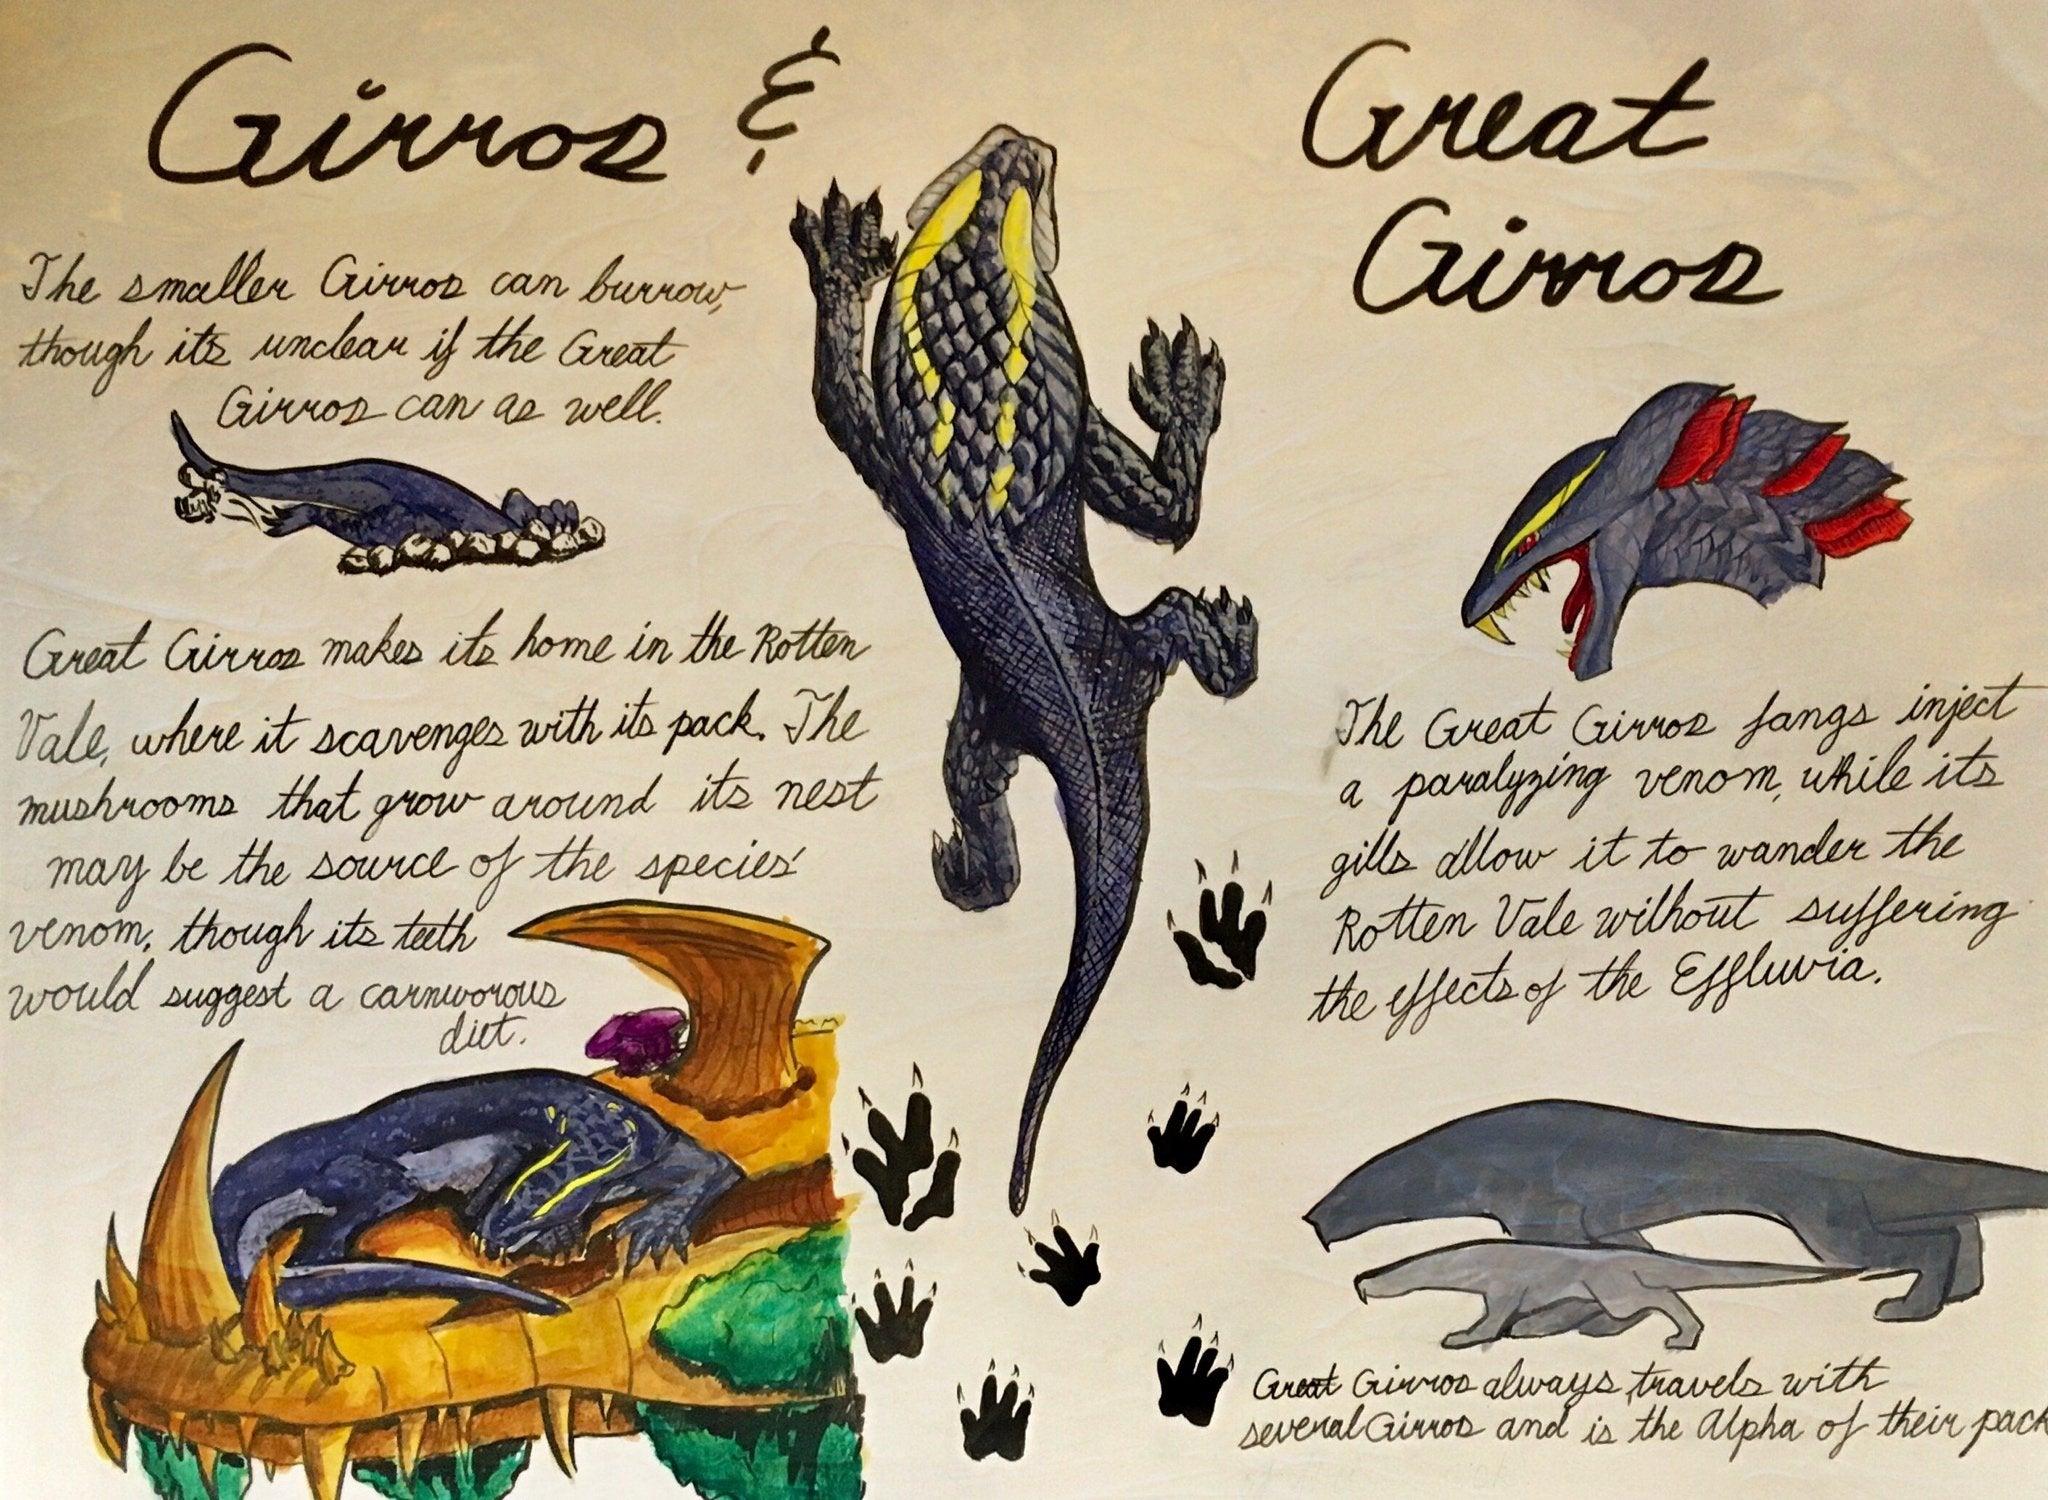 Girros &
Great
Girros
The smaller Girros can burrow,
though its unclear if the Great
Girros can as well.
Great Girros makes its home in the Rotten
Vale, where it scavenges with its pack. The
mushrooms that grow around its nest
may be the source of the species'
venom, though its teeth
would suggest a carnivorous
diet.
The Great Girros fangs inject
a paralyzing venom, while its
gills allow it to wander the
Rotten Vale without suffering
the effects of the Effluvia.
Great Girros always travels with
several Girros and is the Alpha of their pack